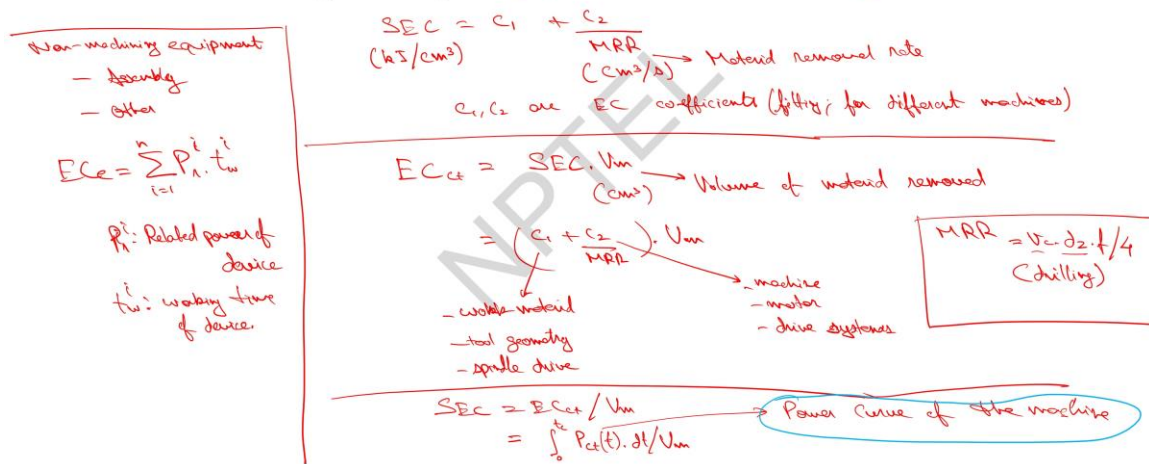 Non-machining equipment
- Assembly
- Other
ECe = Σ_{i=1}^{n} P_r^i . t_w^i
P_r^i : Related power of
device
t_w^i : working time
of device.
SEC = C1 + C2/MRR → Material removed rate
(kJ/cm³) (cm³/s)
C1, C2 are EC coefficients (fitting; for different machines)
ECct = SEC . Vm → Volume of material removed
(cm³)
= (C1 + C2/MRR) . Vm
- material
- tool geometry
- spindle drive
- machine
- motor
- drive systems
MRR = vc . d2 . f/4
(drilling)
SEC = ECct / Vm
= ∫₀^{tc} Pct(t) . dt / Vm → Power curve of the machine
NPTEL